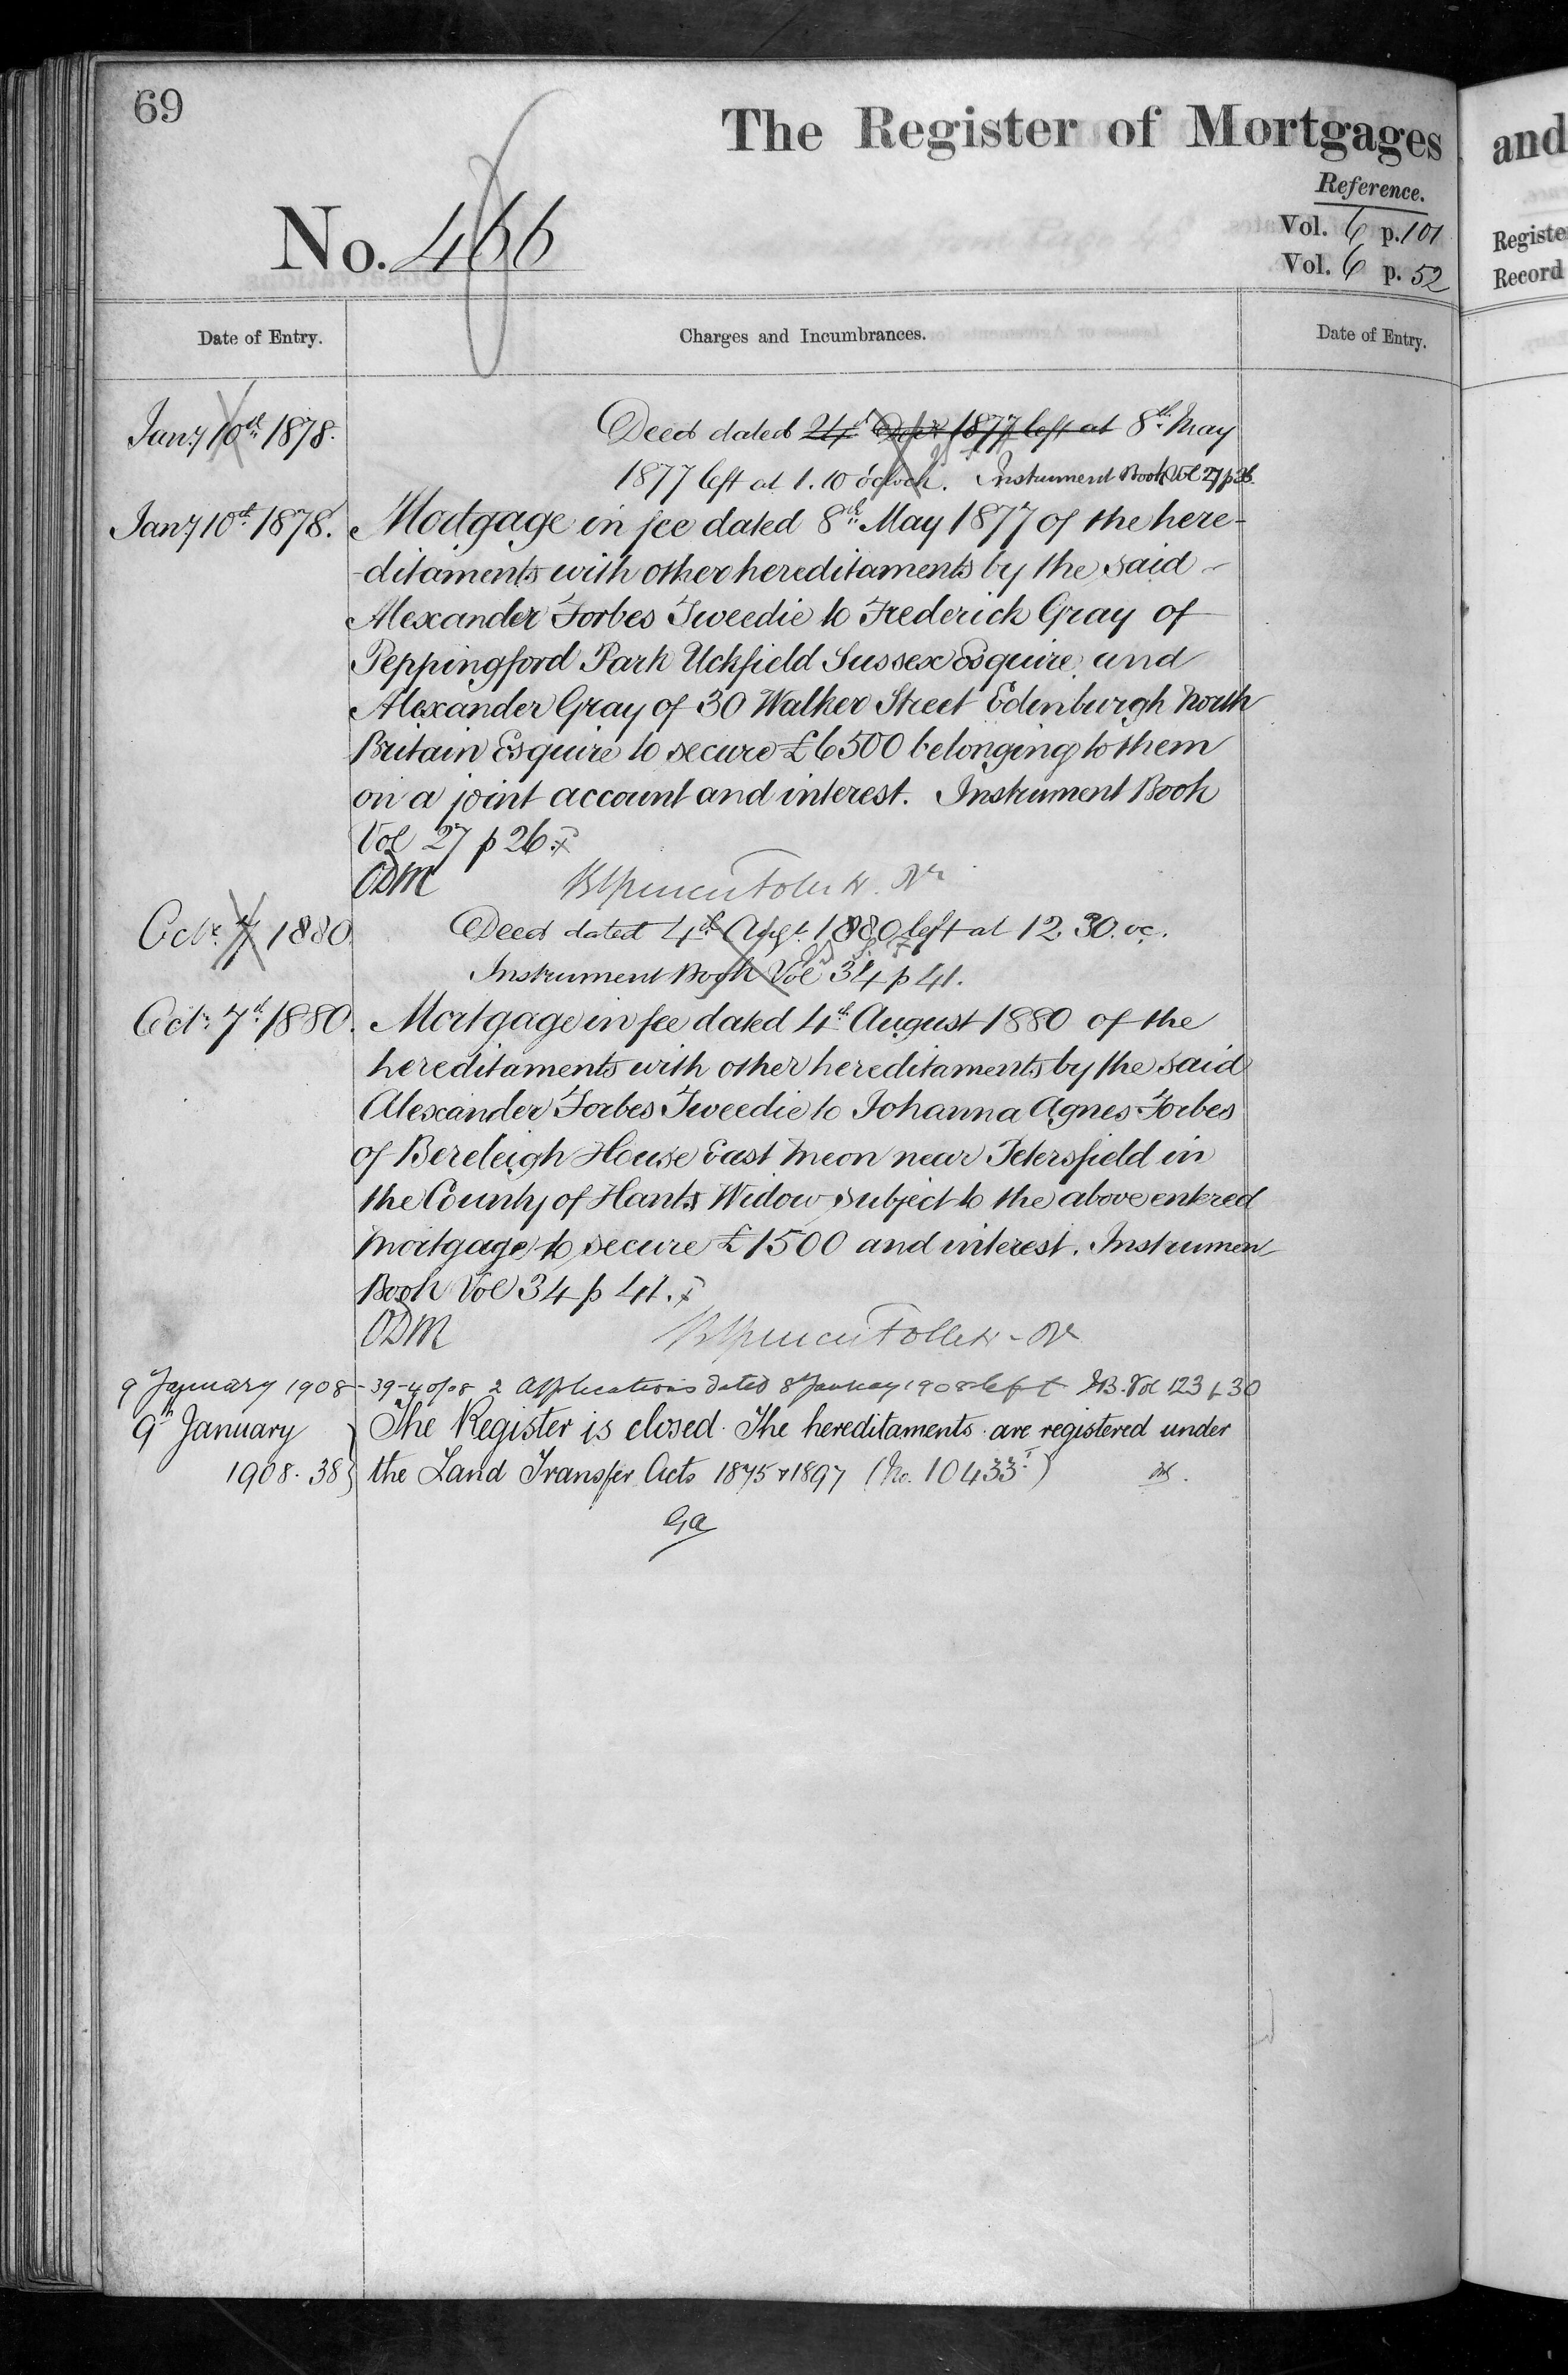 69
The Register of Mortgages
and
Reference.
No. 466
Vol. 6 p. 101
Vol. 6 p. 52
Registe
Record
Date of Entry.
Charges and Incumbrances.
Date of Entry.
Jany 10th 1878. Deed dated 24th Decr 1877 left at 8th May
1877 left at 1.10 o'clock. Instrument Book Vol 27 p 26.
Jany 10th 1878. Mortgage in fee dated 8th May 1877 of the here-
-ditaments with other hereditaments by the said
Alexander Forbes Tweedie to Frederick Gray of
Peppingford Park Uckfield Sussex Esquire and
Alexander Gray of 30 Walker Street Edinburgh North
Britain Esquire to secure £6500 belonging to them
on a joint account and interest. Instrument Book
Vol 27 p 26.
ODM
Octr. 7 1880. Deed dated 4th Augt. 1880 left at 12.30. oc.
Instrument Book Vol 34 p 41.
Octr. 7th 1880. Mortgage in fee dated 4th August 1880 of the
hereditaments with other hereditaments by the said
Alexander Forbes Tweedie to Johanna Agnes Forbes
of Bereleigh House East Meon near Petersfield in
the County of Hants Widow subject to the above entered
Mortgage to secure £1500 and interest. Instrumen
Book Vol 34 p 41.
ODM
9 January 1908 - 39-40/08 2 Applications dated 8th January 1908 left I.B. Vol 123 p 30
9th January The Register is closed. The hereditaments are registered under
1908. 38 the Land Transfer Acts 1875 & 1897 (No. 10433)
Ga